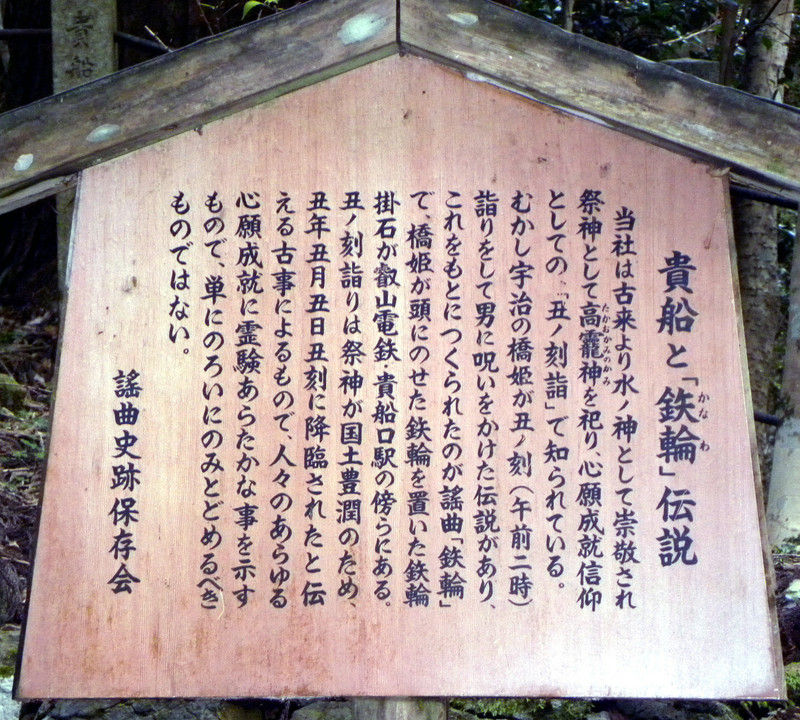 貴船と「鉄輪」伝説
かなわ
当社は古来より水ノ神として崇敬され
祭神として高龗神を祀り、心願成就信仰
たかおかみのかみ
としての、「丑ノ刻詣」で知られている。
むかし宇治の橋姫が丑ノ刻(午前二時)
詣りをして男に呪いをかけた伝説があり、
これをもとにつくられたのが謡曲「鉄輪」
で、橋姫が頭にのせた鉄輪を置いた鉄輪
掛石が叡山電鉄・貴船口駅の傍らにある。
丑ノ刻詣りは祭神が国土豊潤のため、
丑年丑月丑日丑刻に降臨されたと伝
える古事によるもので、人々のあらゆる
心願成就に霊験あらたかな事を示す
もので、単にのろいにのみとどめるべき
ものではない。
謡曲史跡保存会
貴船